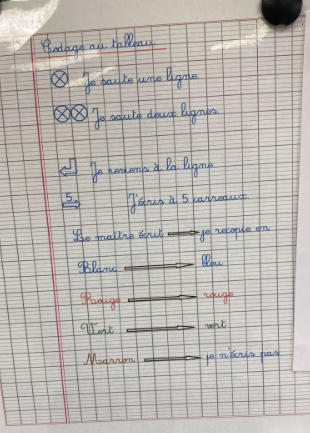 Codage au tableau
Je saute une ligne.
Je saute deux lignes.
Je reviens à la ligne.
5 J'écris à 5 carreaux.
Le maître écrit je recopie en
Blanc bleu
Rouge rouge
Vert vert
Marron je n'écris pas